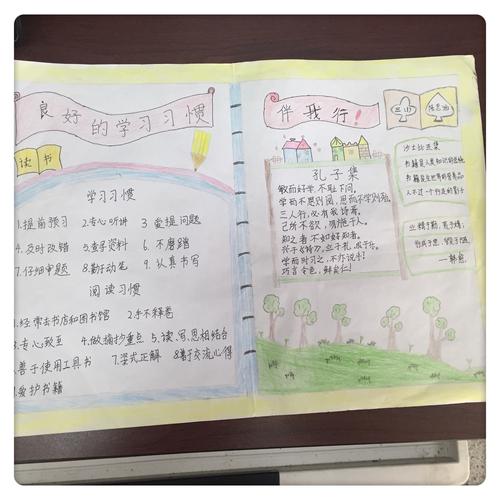 良好的学习习惯
读书
学习习惯
1.提前预习 2.专心听讲 3 爱提问题
4.及时改错 5.查字资料 6.不磨蹭
7.仔细审题 8.勤于动笔 9.认真书写
阅读习惯
1.经常去书店和图书馆 2.手不释卷
3.专心致至 4.做摘抄重点 5.读、写、思相结合
善于使用工具书 7.坐式正解 8善于交流心得
爱护书籍
伴我行!
孔子集
敏而好学,不耻下问,
学而不思则罔,思而不学则殆,
三人行,必有我师焉。
己所不欲,勿施于人。
知之者不如好知者。
学而时习之,不亦说乎!
巧言令色,鲜矣仁!
沙士比亚集
书籍是人类知识的总统
书籍是全世界的营养品
人不过一个行走的影子
业精于勤,荒于嬉;
行成于思,毁于随。
—韩愈